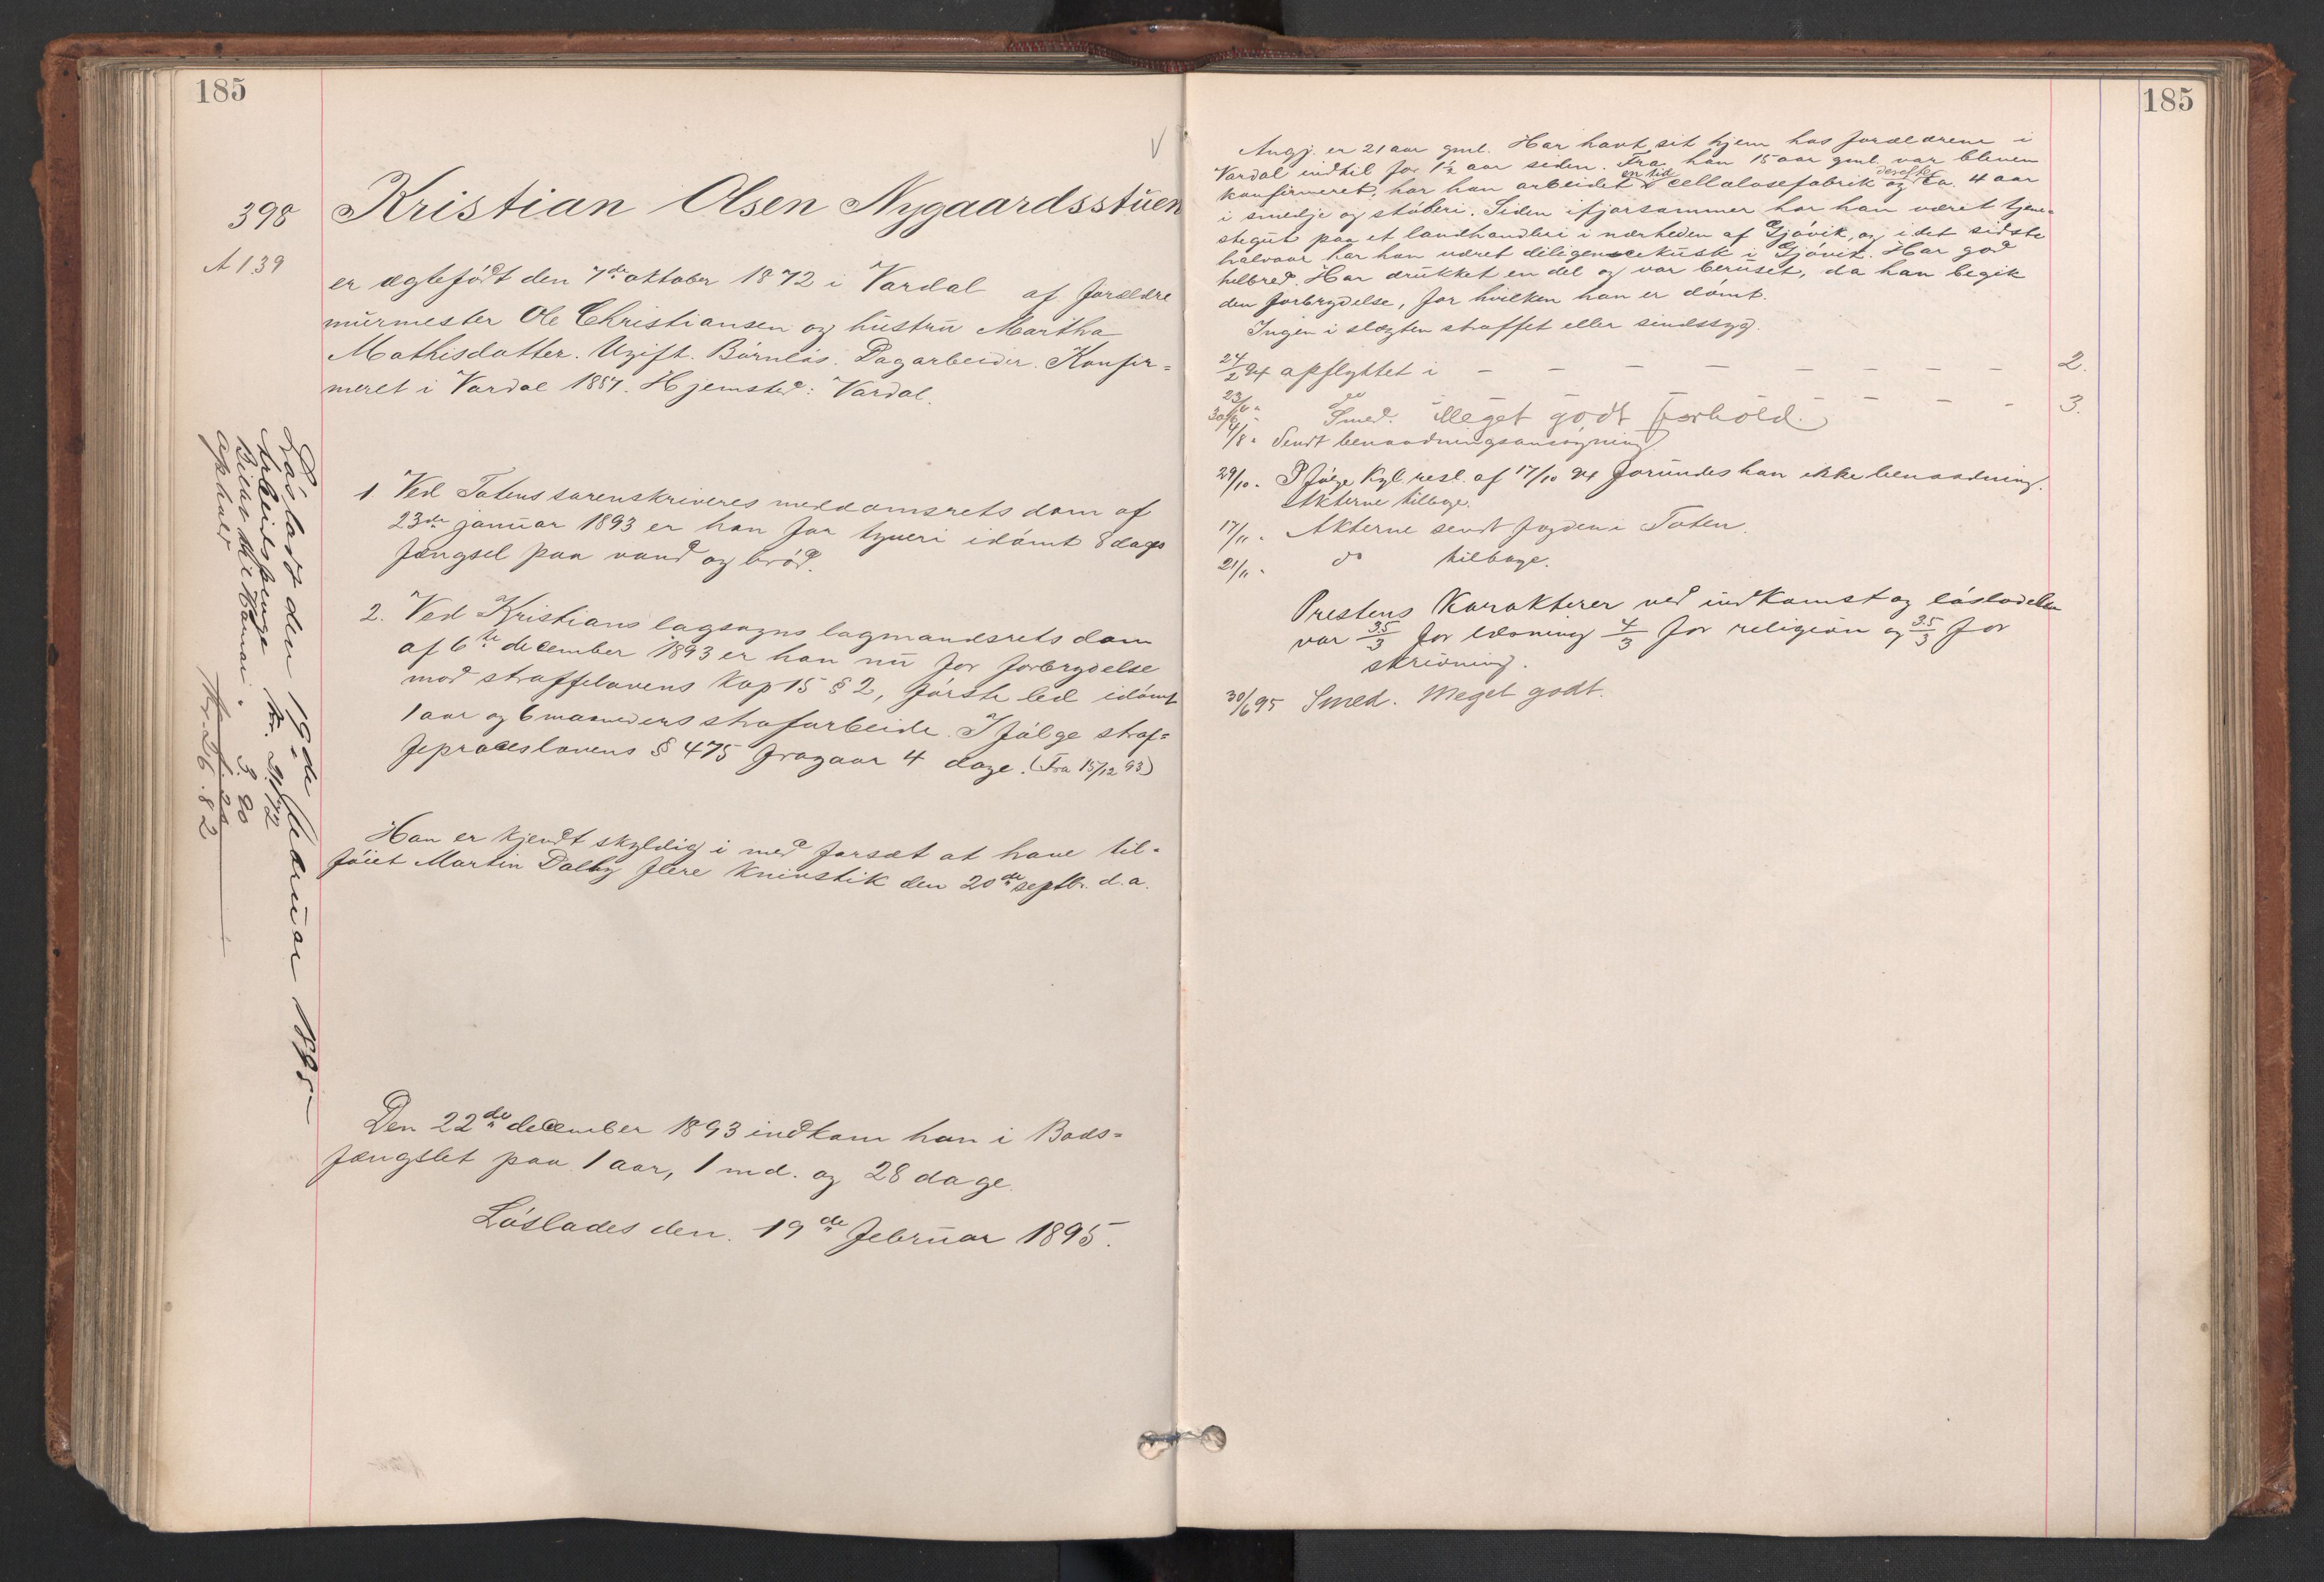 185
398
A 139
Kristian Olsen Nygaardsstuen
er ægtefödt den 7de oktober 1872 i Vardal af forældre
murmester Ole Christiansen og hustru Martha
Mathisdatter. Ugift. Börnlös. Dagarbeider. Konfir=
meret i Vardal 1887. Hjemsted: Vardal.
1 Ved Totens sorenskriveres meddomsrets dom af
23de januar 1893 er han for tyveri idömt 8 dages
fængsel paa vand og bröd.
2. Ved Kristians lagsogns lagmandsrets dom
af 6te december 1893 er han nu for forbrydelse
mod straffelovens Kap 15 § 2, förste led idömt
1 aar og 6 maaneders strafarbeide. Ifölge straf=
feproceslovens § 475 fragaar 4 dage. (Fra 15/12 93)
Han er kjendt skyldig i med forsæt at have til=
föiet Martin Dalby flere knivstik den 20de septbr. d.a.
Den 22de december 1893 indkom han i Bods=
fængslet paa 1 aar, 1 md. og 28 dage.
Löslades den 19de februar 1895.
Lösladt den 19de februar 1895
Arbeidspenge Kr.
Billet til Hamar " 3.20
ophold
Kr. 26.82
185
Angj. er 21 aar gml. Har havt sit hjem hos forældrene i
Vardal indtil for 1½ aar siden. Fra han 15 aar gml. var bleven
konfirmeret, har han arbeidet en tid i cellulosefabrik og derefter ca. 4 aar
i smedje og stöberi. Siden ifjorsommer har han været tjene=
stegut paa et landhandleri i nærheden af Gjövik, og i det sidste
halvaar har han været diligencekusk i Gjövik. Har god
helbred. Har drukket en del og var beruset, da han begik
den forbrydelse, for hvilken han er dömt.
Ingen i slægten straffet eller sindssyg.
24/2 94 opflyttet i – – – – – – – – 2.
23/6 " do – – – – 3.
30/6 " Smed. Meget godt forhold.
4/8 " Sendt benaadningsansögning
29/10 " Ifölge Kgl. resl. af 17/10 94 forundes han ikke benaadning.
Akterne tilbage.
17/11 " Akterne sendt fogden i Toten.
21/11 " do tilbage.
Prestens Karakterer ved indkomst og lösladelse
var 3.5/3 for læsning 4/3 for religion og 3.5/3 for
skrivning.
30/6 95 Smed. Meget godt.